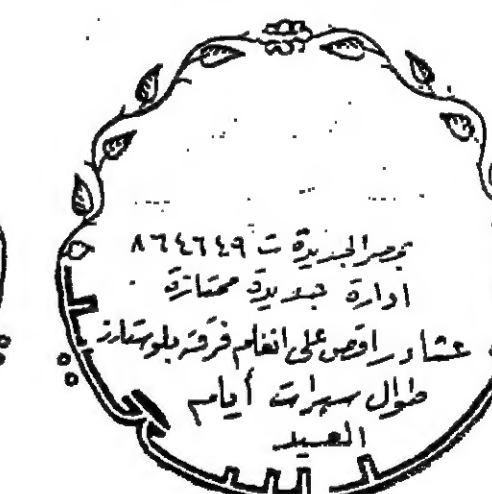 بمصر الجديدة ت ٨٦٤٦٤٩
ادارة جديدة ممتازة
عشاء راقص على انغام فرقة بلوستارز
طوال سهرات أيام
العيد